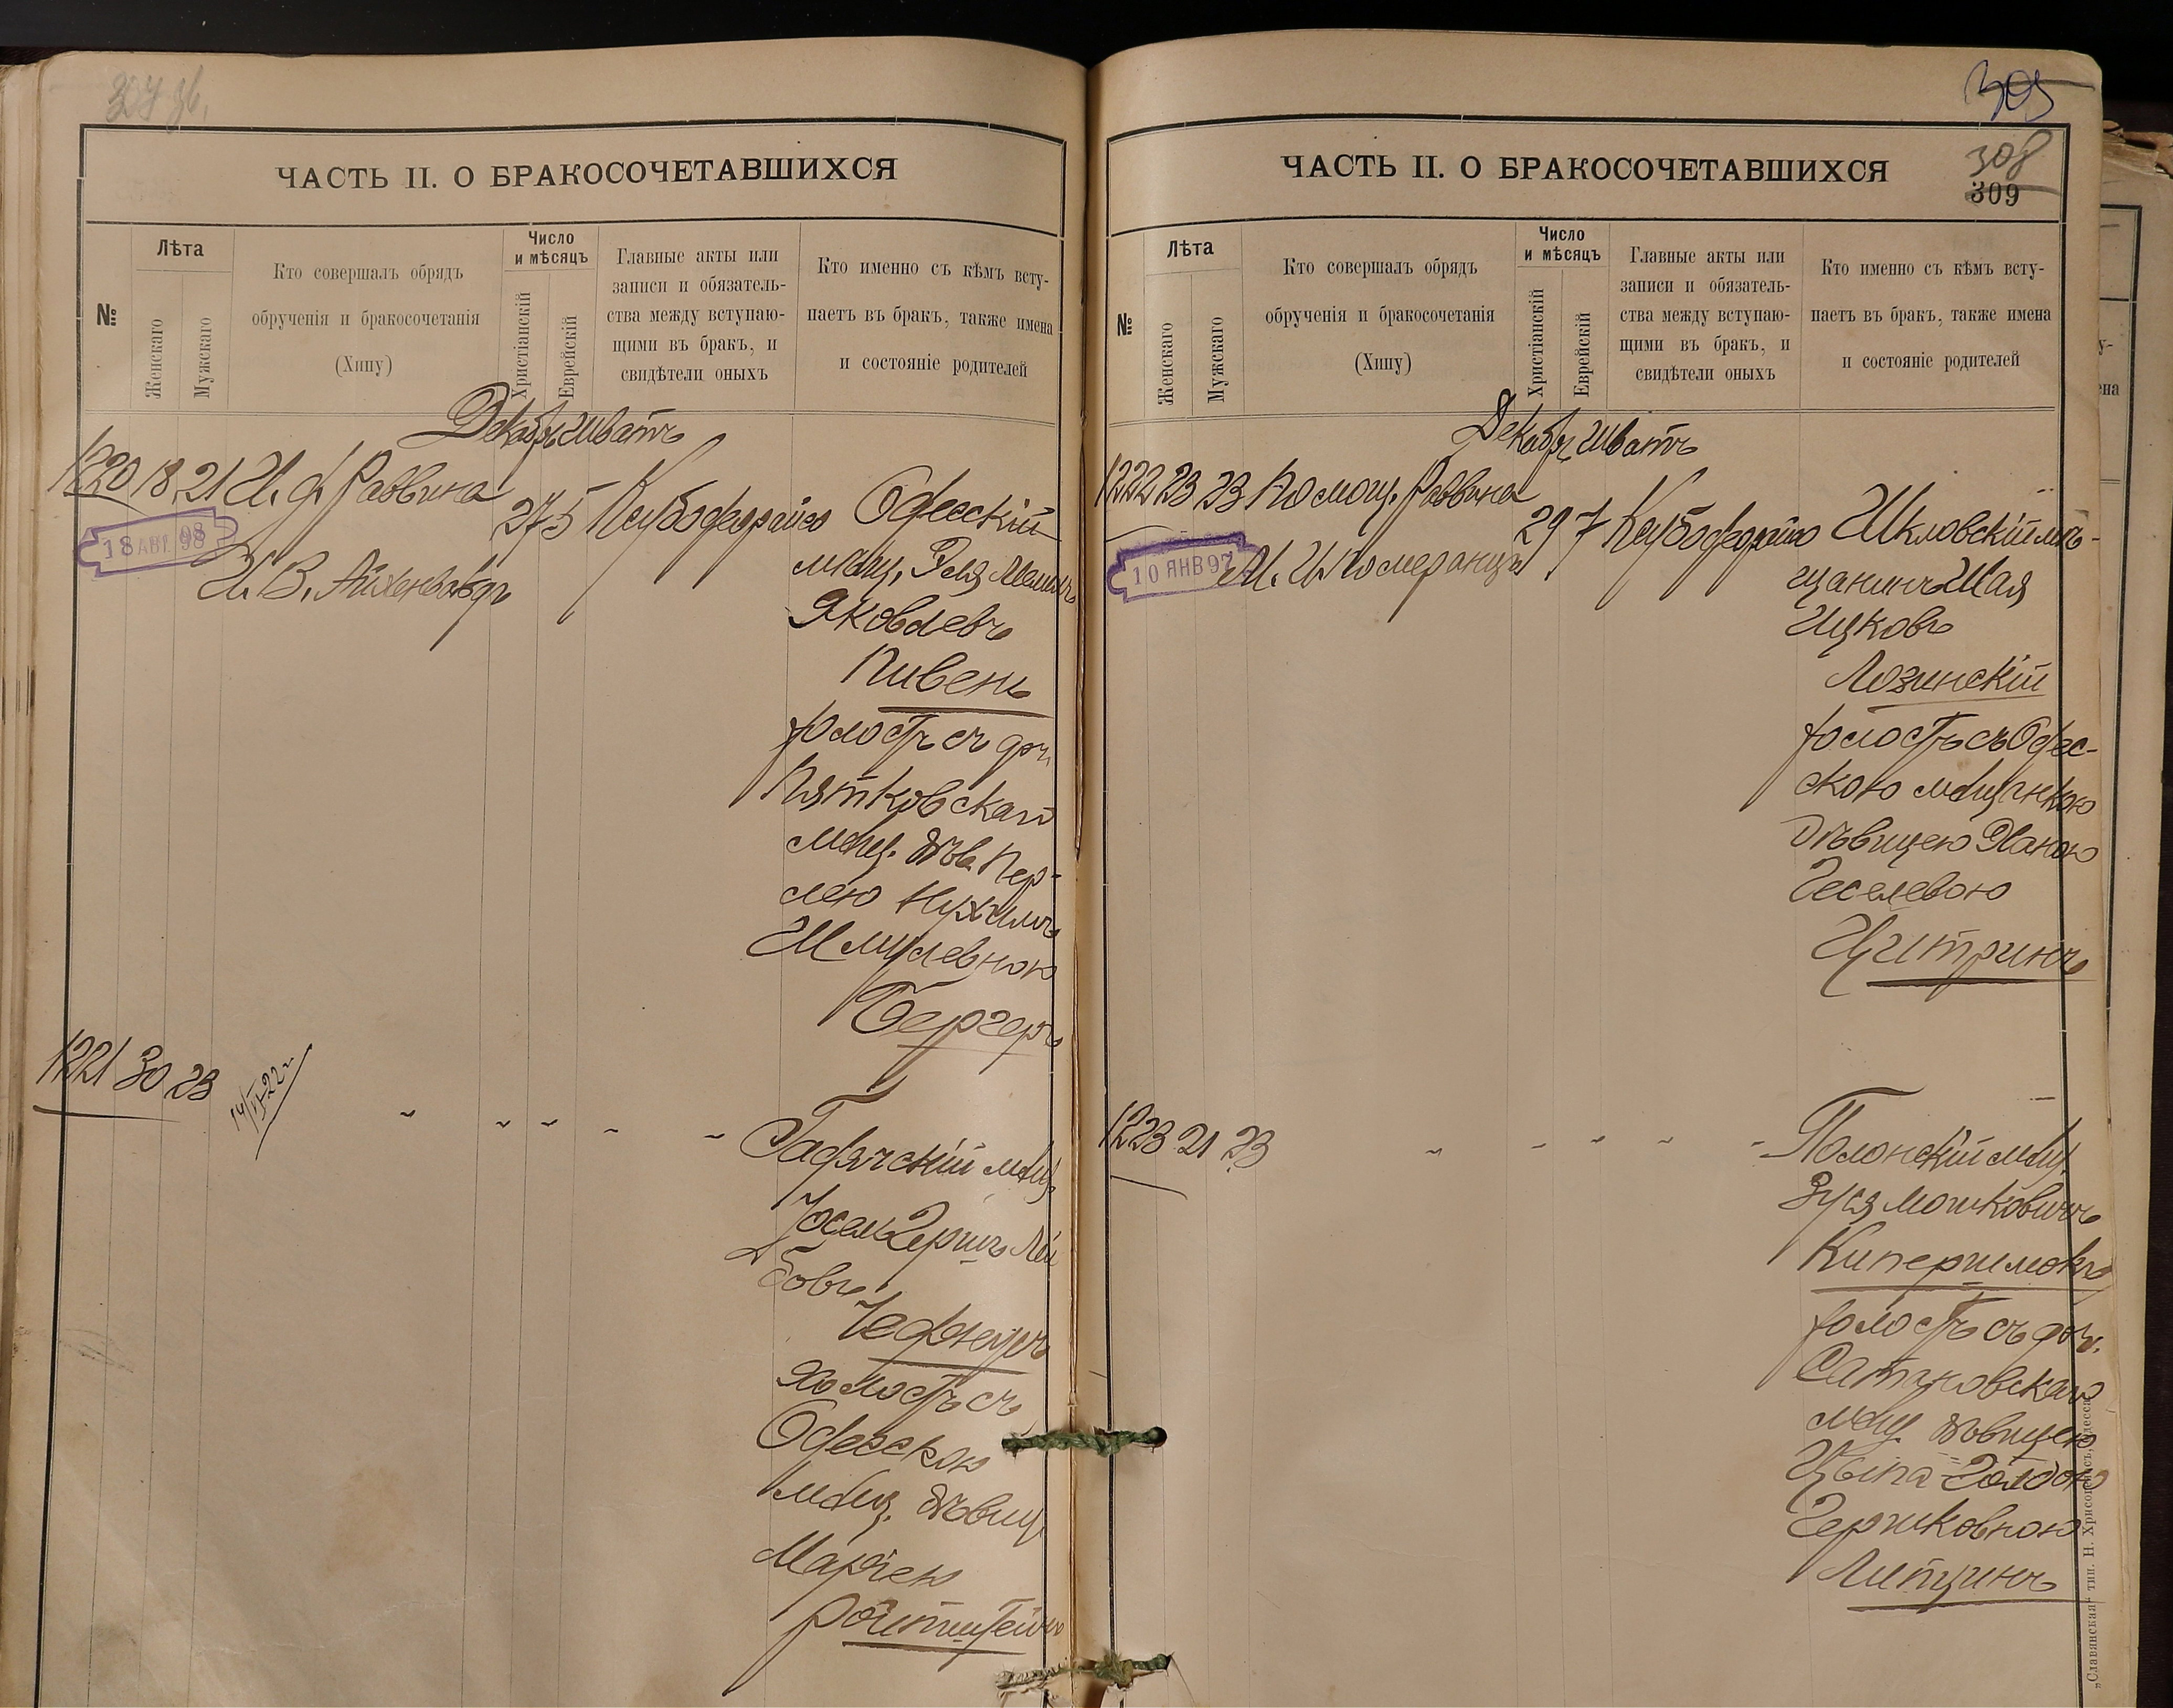 ЧАСТЬ II. О БРАКОСОЧЕТАВШИХСЯ
№
Лѣта
Женскаго
Мужскаго
Кто совершалъ обрядъ
обрученія и бракосочетанія
(Хипу)
Число
и мѣсяцъ
Христіанскій
Еврейскій
Главные акты или
записи и обязатель-
ства между вступаю-
щими въ бракъ, и
свидѣтели оныхъ
Кто именно съ кѣмъ всту-
паетъ въ бракъ, также имена
и состояніе родителей
Декабр. Шватъ
1220 18 21 И. д. Раввина
18 АВГ 98
И. В. Айхенвальдъ
27 5
Одесскій
мѣщ.
Яковлевъ
Пивень
холостъ съ доч.
Пятковскаго
мѣщ. дѣв. Пер-
лею Нухимъ
Шмулевною
Бергеръ
1221 30 23
14/VI-22 г
Гадячскій мѣщ.
Іосель Гершъ Лей
бовъ
холостъ съ
Одесскою
мѣщ. дѣвиц.
Маріею
Ройтштейнъ
305
ЧАСТЬ II. О БРАКОСОЧЕТАВШИХСЯ
308
309
№
Лѣта
Женскаго
Мужскаго
Кто совершалъ обрядъ
обрученія и бракосочетанія
(Хипу)
Число
и мѣсяцъ
Христіанскій
Еврейскій
Главные акты или
записи и обязатель-
ства между вступаю-
щими въ бракъ, и
свидѣтели оныхъ
Кто именно съ кѣмъ всту-
паетъ въ бракъ, также имена
и состояніе родителей
Декабр. Шватъ
1222 23 23 Помощ. Раввина
10 ЯНВ 97
М. И. Померанцъ
29 7
Шкловскій мѣ-
щанинъ Шая
Ицковъ
Лозинскій
холостъ съ Одес-
скою мѣщанкою
дѣвицею Ханою
Геселевою
Цитринъ
1223 21 23
Полонскій мѣщ.
Зуся Мошковичъ
Кипершмокъ
холостъ съ доч.
Сатановскаго
мѣщ. дѣвицею
Цыпа-Голдою
Гершковною
Липцинъ
„Славянская“ тип. Н. Хрисогелосъ, Одесса.